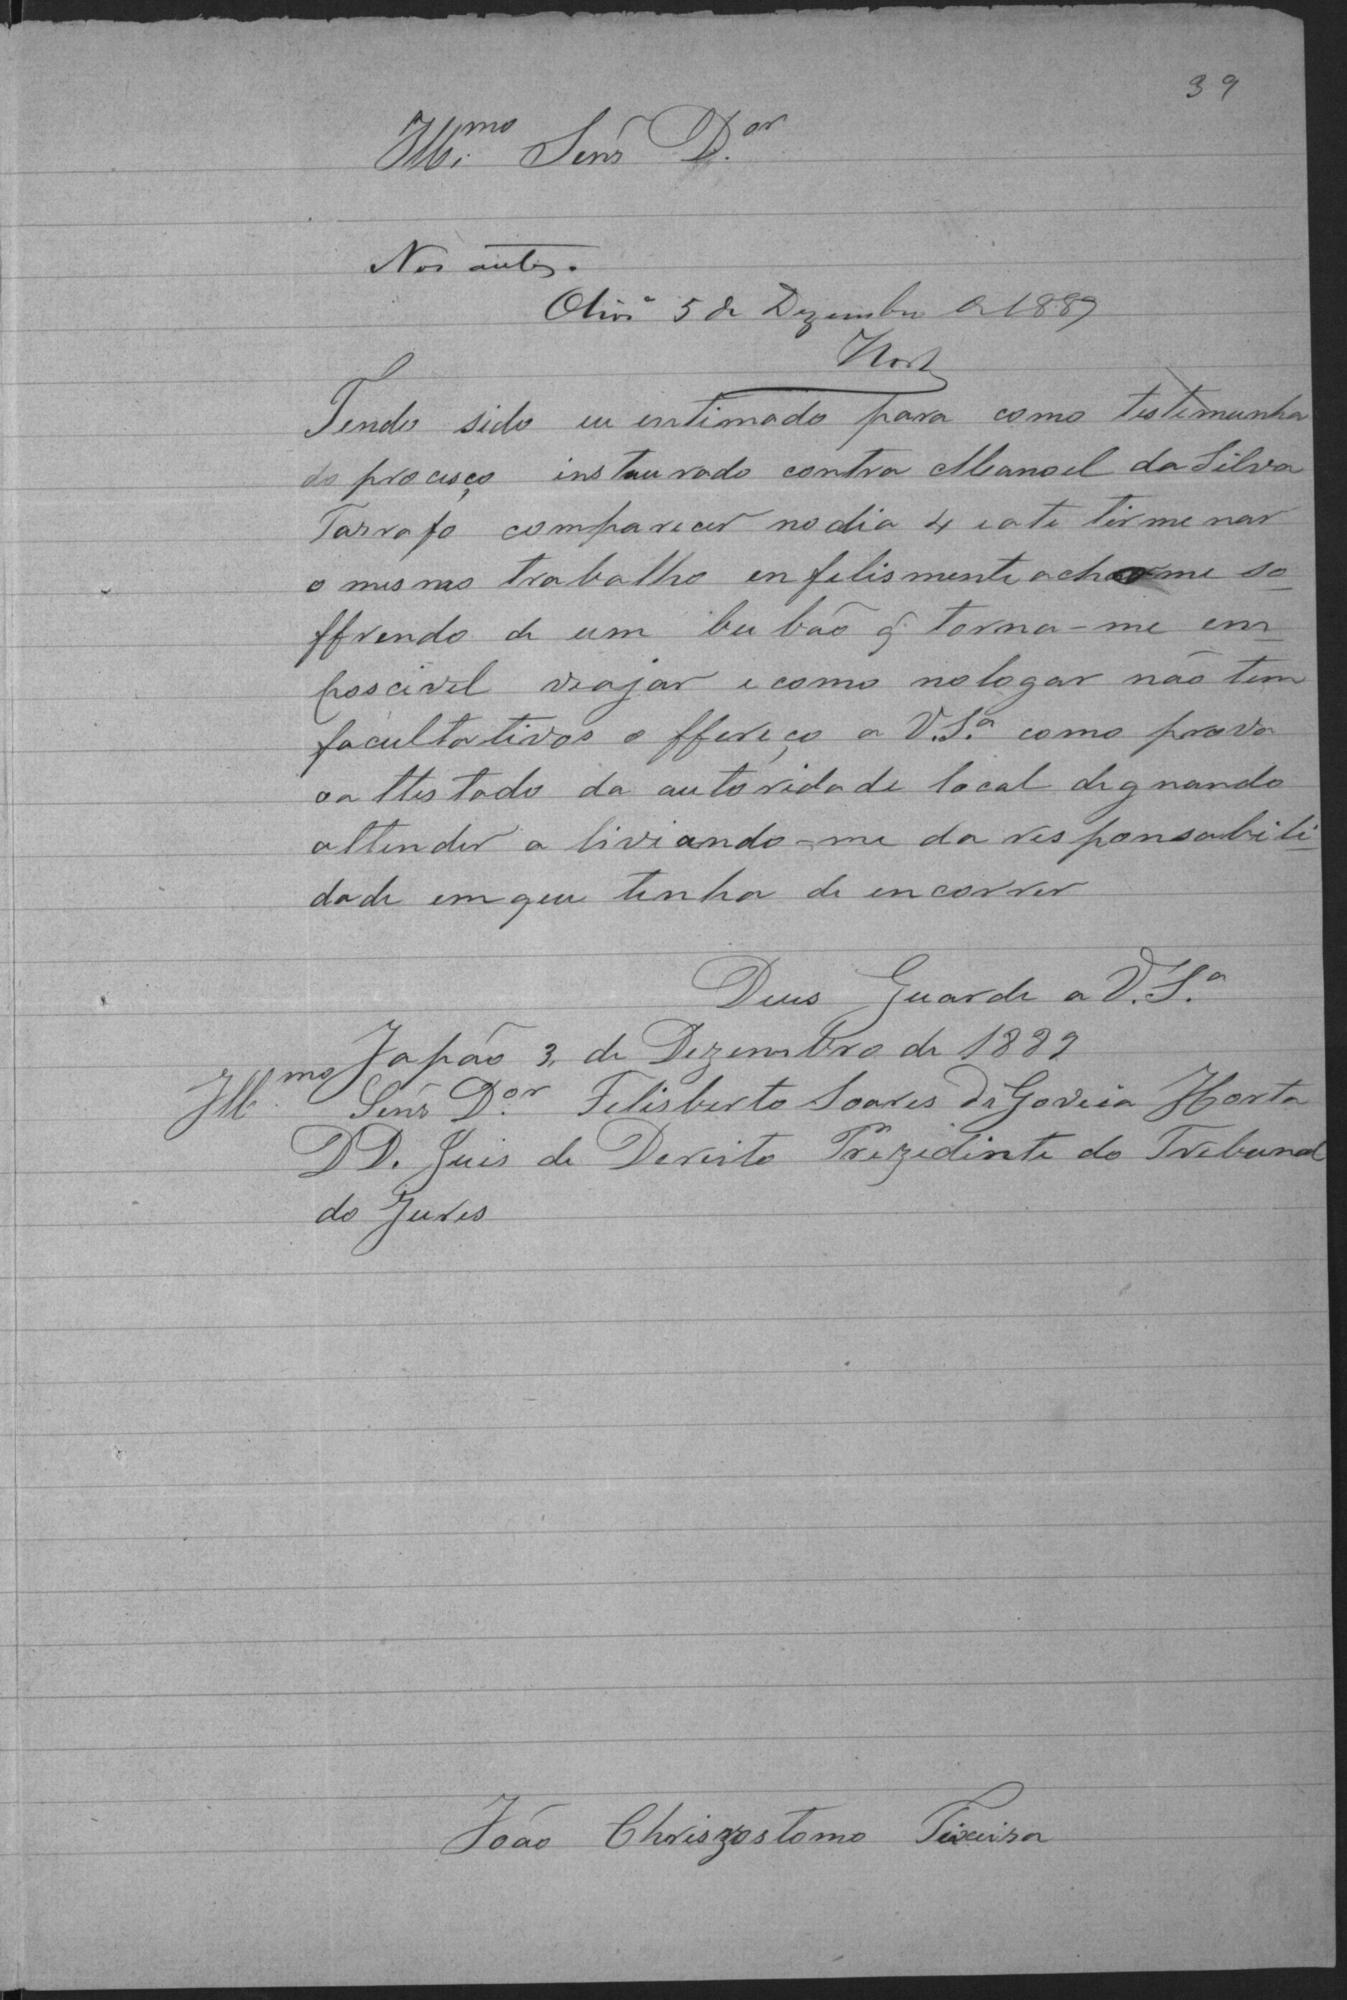 39
Illmo. Senr Dor.
Nos autos.
Olivra 5 de Dezembro de 1889
Horta
Tendo sido eu entimado para como testemunha
do procisço instaurado contra Manoel da Silva
Tarrafo comparecer no dia 4 e ate termenar
o mesmo trabalho enfelismente acho me so-
ffrendo de um bubão q̃ torna-me em-
poscivel viajar e como no logar não tem
facultativos offereço a V.S.ª como prova
o attestado da autoridade local dignando
attender a liviando-me da responsabili-
dade em que tinha de encorrer
Deus Guarde a V.S.ª
Japão 3, de Dezembro de 1889
Illmo. Senr Dor. Felisberto Soares de Goveia Horta
DD. Juis de Dereito Prezidente do Trebunal
do Jures
João Chriszostomo Teixeira